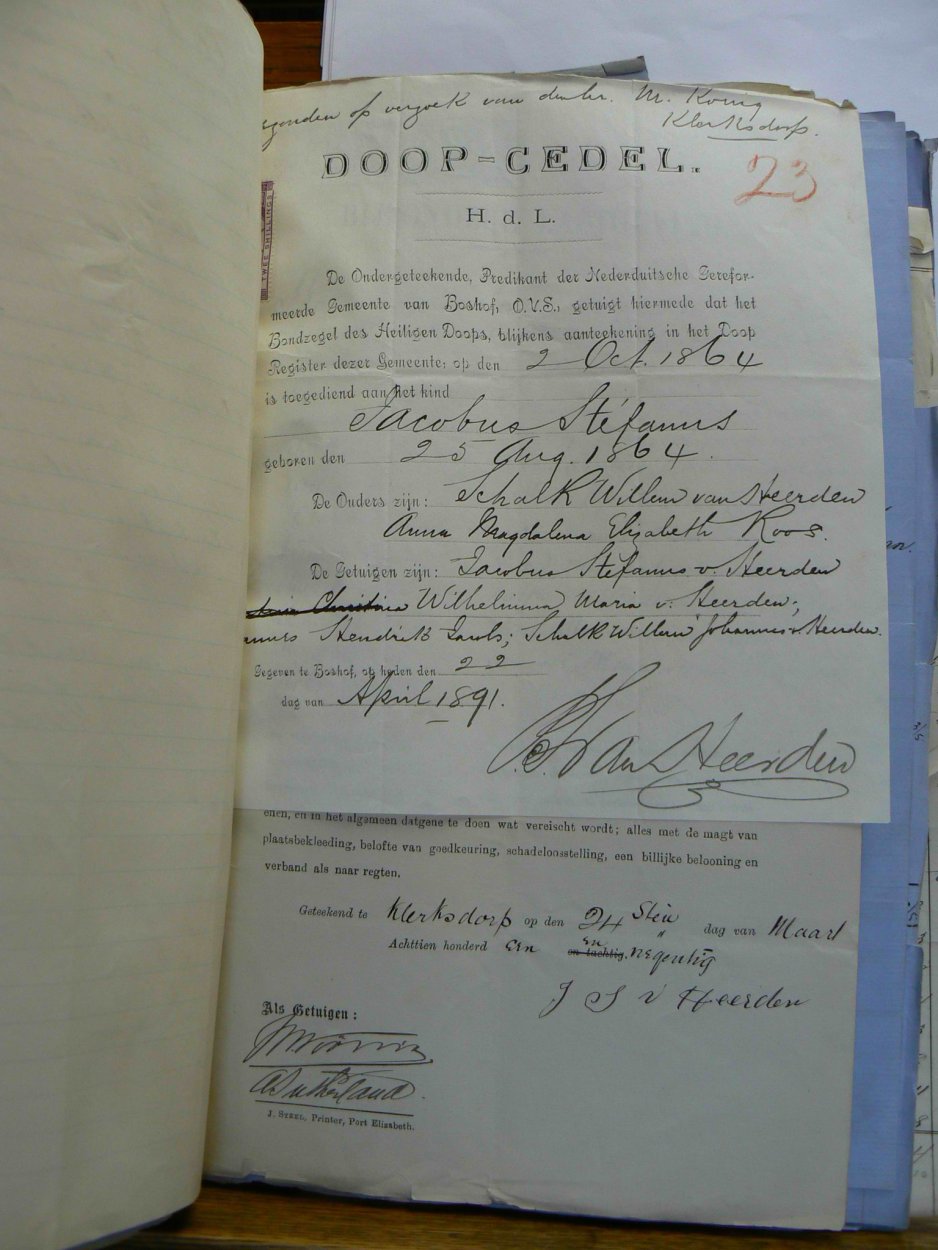 gezonden op verzoek van den hr. M. König
Klerksdorp.
DOOP-CEDEL.
23
H. d. L.
TWEE SHILLINGS
De Ondergeteekende, Predikant der Nederduitsche Gerefor-
meerde Gemeente van Boshof, O.V.S., getuigt hiermede dat het
Bondzegel des Heiligen Doops, blijkens aanteekening in het Doop
Register dezer Gemeente; op den 2 Oct. 1864
is toegediend aan het kind
Jacobus Stéfanus
geboren den 25 Aug. 1864.
De Ouders zijn: Schalk Willem van Heerden
Anna Magdalena Elizabeth Roos.
De Getuigen zijn: Jacobus Stéfanus v. Heerden
Christina Wilhelmina Maria v. Heerden;
Hendrik Jacobs; Schalk Willem Johannes v Heerden.
Gegeven te Boshof, op heden den 22
dag van April 1891.
van Heerden
enen, en in het algemeen datgene te doen wat vereischt wordt; alles met de magt van
plaatsbekleeding, belofte van goedkeuring, schadeloosstelling, een billijke belooning en
verband als naar regten.
Geteekend te Klerksdorp op den 24 sten dag van Maart
Achttien honderd een en en tachtig. negentig
J S v Heerden
Als Getuigen:
A Sutherland
J. Steel, Printer, Port Elizabeth.